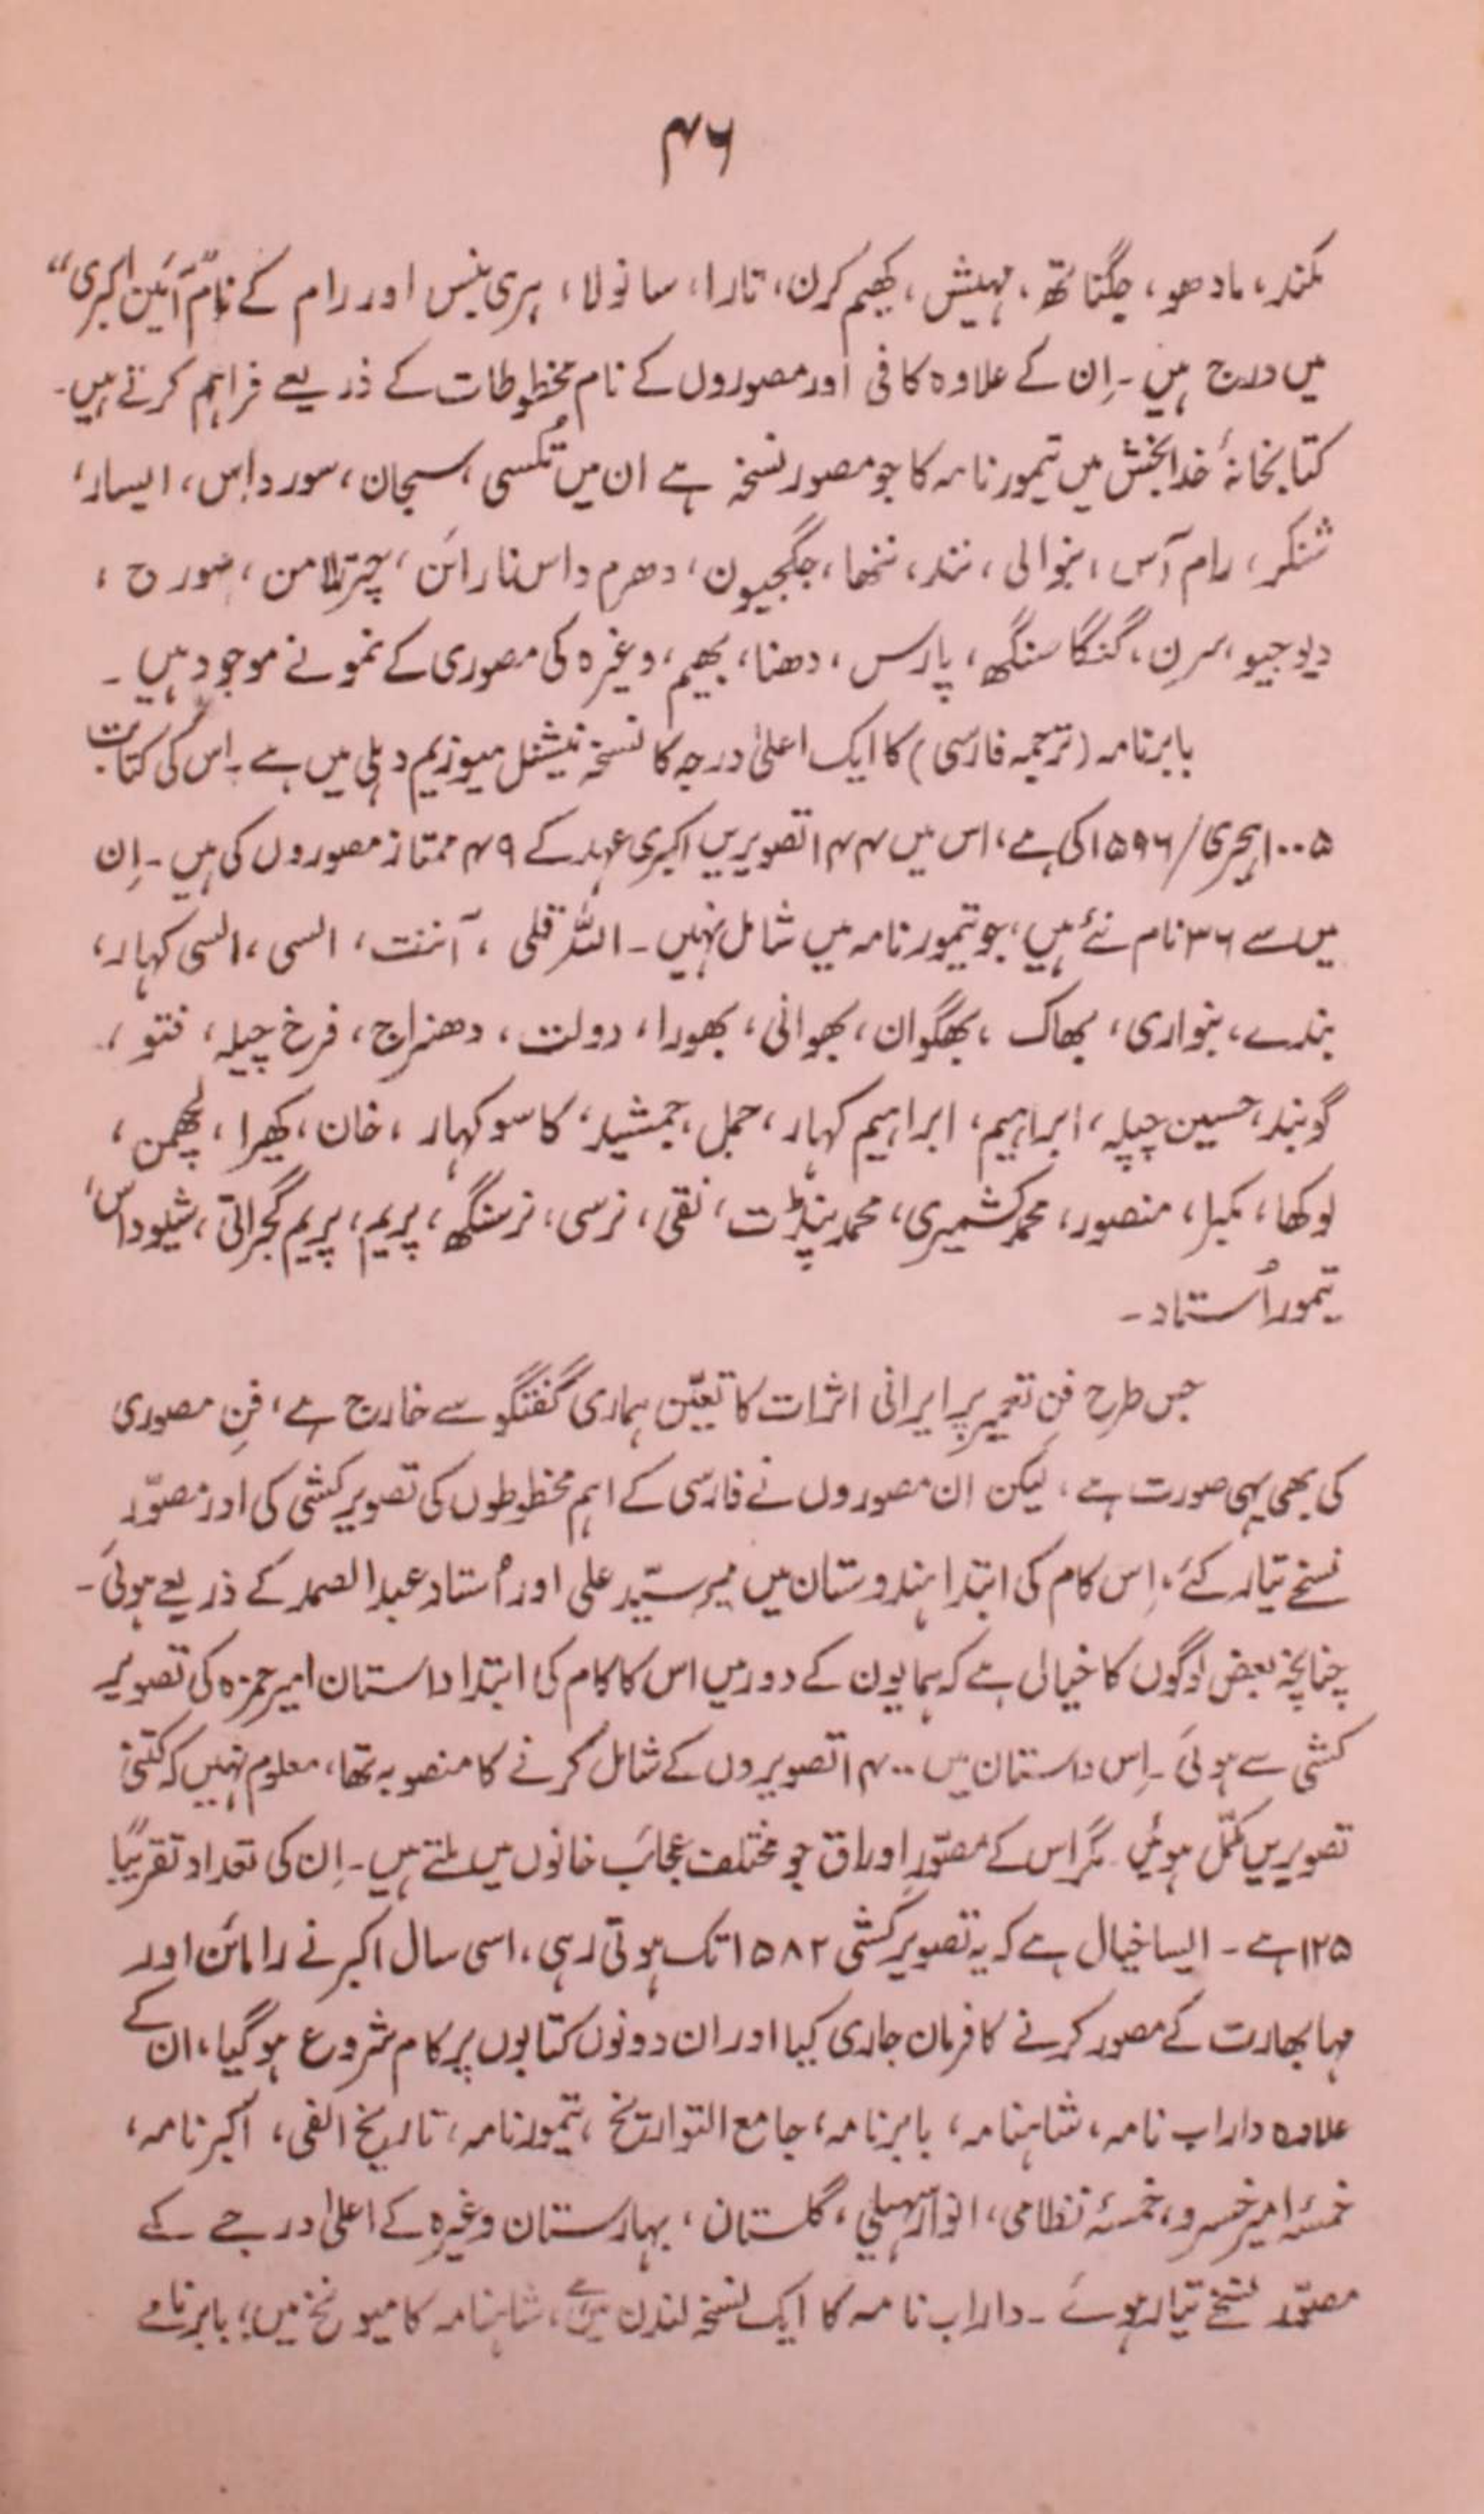 ۴۶
مکند، مادھو، جگناتھ، مہیش، کھیم کرن، تارا، سانولا، ہری بنس اور رام کے نام ”آئین اکبری“
میں درج ہیں۔ اِن کے علاوہ کافی اور مصوروں کے نام مخطوطات کے ذریعے فراہم کرتے ہیں۔
کتابخانۂ خدابخش میں تیمور نامہ کا جو مصور نسخہ ہے ان میں تُلسی، سبحان، سورداس، ایسار،
شنکر، رام آس، بنوالی، نند، ننھا، جگجیون، دھرم داس نارائن، چترامن، سورج،
دیوجیو، سرن، گنگا سنگھ، پارس، دھنا، بھیم، وغیرہ کی مصوری کے نمونے موجود ہیں۔
بابرنامہ (ترجمہ فارسی) کا ایک اعلیٰ درجہ کا نسخہ نیشنل میوزیم دہلی میں ہے۔ اس کی کتابت
۱۰۰۵ ہجری/ ۱۵۹۶ کی ہے، اس میں ۱۴۴ تصویریں اکبری عہد کے ۴۹ ممتاز مصوروں کی ہیں۔ اِن
میں سے ۳۶ نام نئے ہیں، جو تیمور نامہ میں شامل نہیں۔ اللہ قلی، آننت، السی، السی کہار،
بندے، بنواری، بھاگ، بھگوان، بھوانی، بھورا، دولت، دھنراج، فرخ چیلہ، فتو،
گوبند، حسین چیلہ، ابراہیم، ابراہیم کہار، جمل، جمشید، کاسو کہار، خان، کھیرا، لچھمن،
لوکھا، مکرا، منصور، محمد کشمیری، محمد پنڈت، نقی، نرسی، نرسنگھ، پریم، پریم گجراتی، شیوداس،
تیمور اُستاد۔
جس طرح فن تعمیر پر ایرانی اثرات کا تعیّن ہماری گفتگو سے خارج ہے، فنِ مصوری
کی بھی یہی صورت ہے، لیکن ان مصوروں نے فارسی کے اہم مخطوطوں کی تصویر کشی کی اور مصوّر
نسخے تیار کئے، اِس کام کی ابتدا ہندوستان میں میر سیّد علی اور اُستاد عبدالصمد کے ذریعے ہوئی۔
چنانچہ بعض لوگوں کا خیال ہے کہ ہمایون کے دور میں اس کا کام کی ابتدا داستان امیر حمزہ کی تصویر
کشی سے ہوئی۔ اِس داستان میں ۱۴۰۰ تصویروں کے شامل کرنے کا منصوبہ تھا، معلوم نہیں کہ کتنی
تصویریں مکمّل ہوئیں۔ مگر اس کے مصوّر اوراق جو مختلف عجائب خانوں میں ملتے ہیں۔ اِن کی تعداد تقریباً
۱۲۵ ہے۔ ایسا خیال ہے کہ یہ تصویر کشی ۱۵۸۲ تک ہوتی رہی، اسی سال اکبر نے رامائن اور
مہابھارت کے مصور کرنے کا فرمان جاری کیا اور ان دونوں کتابوں پر کام شروع ہوگیا، ان کے
علاوہ داراب نامہ، شاہنامہ، بابرنامہ، جامع التواریخ، تیمورنامہ، تاریخ الفی، اکبرنامہ،
خمسۂ امیر خسرو، خمسۂ نظامی، انوار سہیلی، گلستان، بہارستان وغیرہ کے اعلیٰ درجے کے
مصوّر نسخے تیار ہوئے۔ داراب نامہ کا ایک نسخہ لندن میں ہے، شاہنامہ کا میونخ میں، بابرنامے